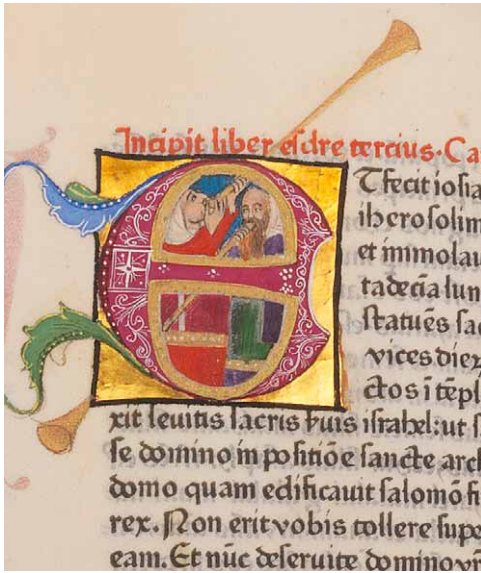 Incipit liber esdre tercius. Ca
ET fecit iosia
iherosolim
et immolau
ta decīa lun
statuēs sac
vices dier
ctos ī tēpl
xit leuitis sacris ꝑuis israhel: ut s
se domino in positiōe sancte arch
domo quam edificauit salomō fi
rex. Non erit vobis tollere supe
eam. Et nūc deseruite domino vr̄